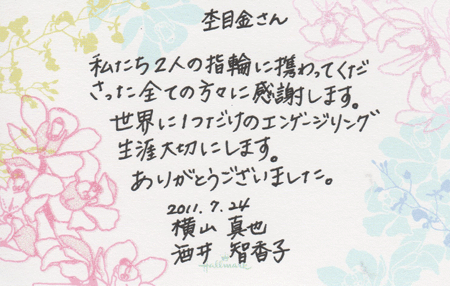 杢目金さん
私たち2人の指輪に携わってくだ
さった全ての方々に感謝します。
世界に1つだけのエンゲージリング
生涯大切にします。
ありがとうございました。
2011.7.24
横山 真也
酒井 智香子
Hallmark